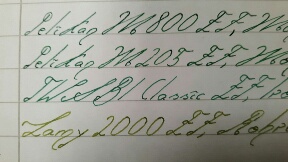 Pelikan M800 EF,
Pelikan M205 EF,
TWSBI Classic EF,
Lamy 2000 EF,